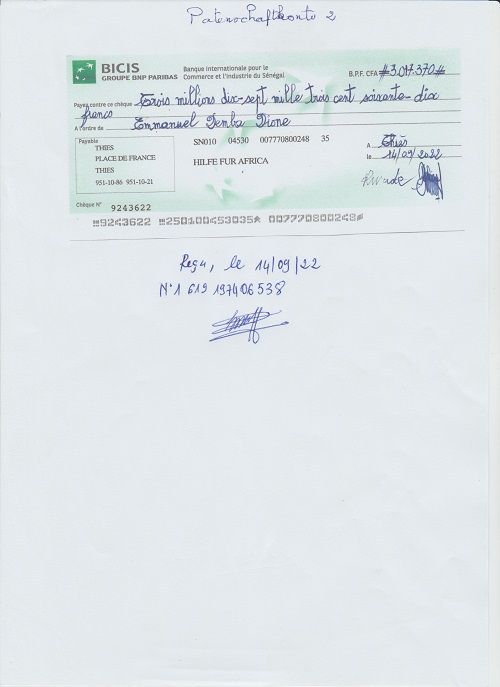 Patenschaftkonto 2
BICIS
GROUPE BNP PARIBAS
Banque Internationale pour le
Commerce et l'Industrie du Sénégal
B.P.F. CFA #3.017.370#
Payez contre ce chèque Trois millions dix-sept mille trois cent soixante-dix
francs
A l'ordre de Emmanuel Demba Dione
Payable
THIES
PLACE DE FRANCE
THIES
951-10-86 951-10-21
SN010 04530 007770800248 35
HILFE FUR AFRICA
A Thiès
le 14/09/2022
Chèque N° 9243622
9243622 250100453035 007770800248
Reçu, le 14/09/22
N° 1 619 197406538